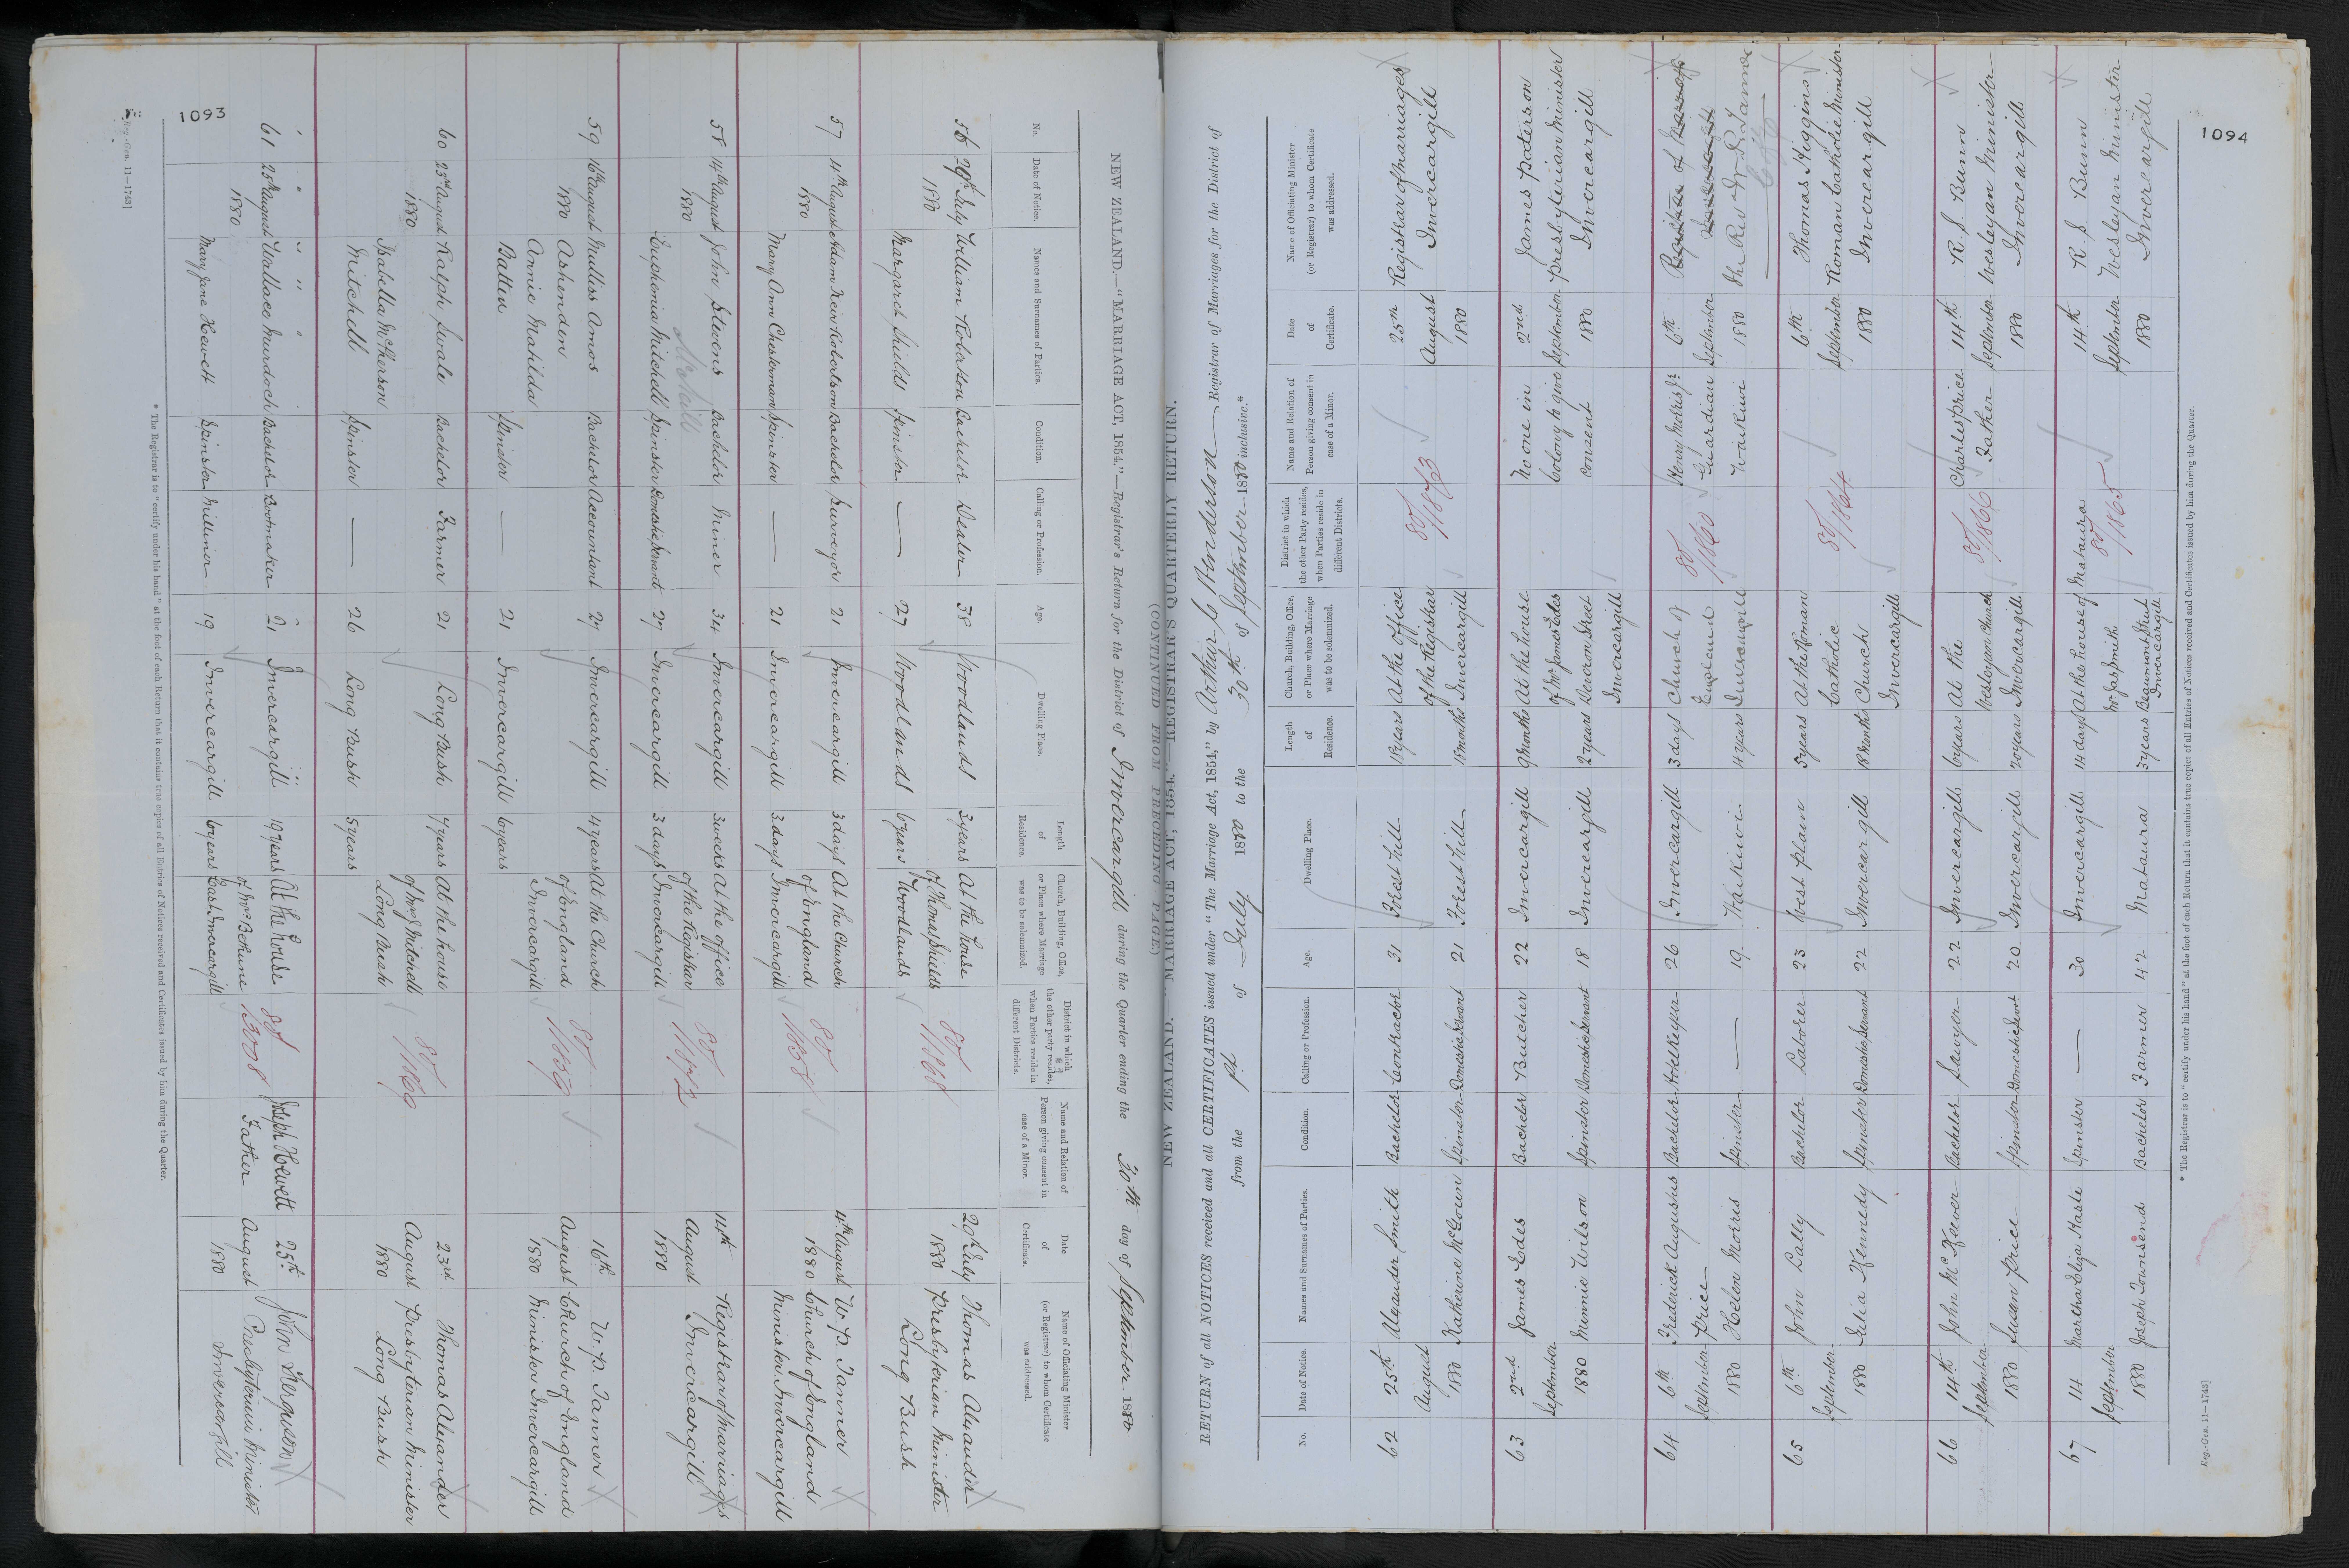 1093
NEW ZEALAND.—"MARRIAGE ACT, 1854."—Registrar's Return for the District of Invercargill during the Quarter ending the 30th day of September 1880
No. Date of Notice. Names and Surnames of Parties. Condition. Calling or Profession. Age. Dwelling Place. Length of Residence. Church, Building, Office, or Place where Marriage was to be solemnized. District in which the other party resides, when Parties reside in different Districts. Name and Relation of Person giving consent in case of a Minor. Date of Certificate. Name of Officiating Minister (or Registrar) to whom Certificate was addressed.
56 29th July William Robertson Bachelor Dealer 38 Woodlands 3 years At the house 80/1868 29th July Thomas Alexander
1880 of Thomas Shields 1880 Presbyterian Minister
Margaret Shields Spinster — 27 Woodlands 6 years Woodlands Long Bush
57 4th August Adam Keir Robertson Bachelor Surveyor 21 Invercargill 3 days At the Church 80/1858 4th August W. P. Tanner
1880 of England 1880 Church of England
Mary Ann Chesterman Spinster — 21 Invercargill 3 days Invercargill Minister Invercargill
58 14th August John Stevens Bachelor Miner 34 Invercargill 3 weeks At the office 80/1872 14th Registrar of Marriages
1880 McNeill of the Registrar August Invercargill
Euphemia Mitchell Spinster Domestic Servant 27 Invercargill 3 days Invercargill 1880
59 16th August Mullis Amos Bachelor Accountant 27 Invercargill 4 years At the Church 80/1859 16th W. P. Tanner
1880 Ashenden of England August Church of England
Annie Matilda Invercargill 1880 Minister Invercargill
Batten Spinster — 21 Invercargill 6 years
60 23rd August Ralph Swale Bachelor Farmer 21 Long Bush 7 years At the house 80/1869 23rd Thomas Alexander
1880 of Mrs Mitchell August Presbyterian Minister
Isabella McPherson Long Bush 1880 Long Bush
Mitchell Spinster — 26 Long Bush 5 years
61 25th August Wallace Murdoch Bachelor Bootmaker 21 Invercargill 19 years At the house 80/3008 Joseph Hewett 25th John Ferguson
1880 of Mrs Bethune Father August Presbyterian Minister
Mary Jane Hewett Spinster Milliner 19 Invercargill 6 years East Invercargill 1880 Invercargill
* The Registrar is to "certify under his hand" at the foot of each Return that it contains true copies of all Entries of Notices received and Certificates issued by him during the Quarter.
Reg.-Gen. 11—1743]
1094
(CONTINUED FROM PRECEDING PAGE)
NEW ZEALAND.—"MARRIAGE ACT, 1854."—REGISTRAR'S QUARTERLY RETURN.
RETURN of all NOTICES received and all CERTIFICATES issued under "The Marriage Act, 1854," by Arthur Jc Anderton Registrar of Marriages for the District of
from the 1st of July 1880 to the 30th of September 1880 inclusive.*
No. Date of Notice. Names and Surnames of Parties. Condition. Calling or Profession. Age. Dwelling Place. Length of Residence. Church, Building, Office, or Place where Marriage was to be solemnized. District in which the other Party resides, when Parties reside in different Districts. Name and Relation of Person giving consent in case of a Minor. Date of Certificate. Name of Officiating Minister (or Registrar) to whom Certificate was addressed.
62 25th Alexander Smith Bachelor Contractor 31 Forest hill 18 years At the office 80/1873 25th Registrar of Marriages
August of the Registrar August Invercargill
1880 Katherine McGowan Spinster Domestic Servant 21 Forest hill 18 months Invercargill 1880
63 2nd James Edes Bachelor Butcher 22 Invercargill 9 months At the house No one in 2nd James Paterson
September of Mr James Edes Colony to give September Presbyterian Minister
1880 Minnie Wilson Spinster Domestic Servant 18 Invercargill 2 years Deveron Street consent 1880 Invercargill
Invercargill
64 6th Frederick Augustus Bachelor Hotelkeeper 26 Invercargill 3 days Church of 80/1860 Henry Morris Jr 6th
September Price England Guardian September
1880 Helen Morris Spinster — 19 Waikiwi 4 years Invercargill Waikiwi 1880 The Rev W. P. Tanner
65 6th John Lally Bachelor Laborer 23 West Plain 5 years At the Roman 80/1864 6th Thomas Higgins
September Catholic September Roman Catholic Minister
1880 Julia Kennedy Spinster Domestic Servant 22 Invercargill 18 months Church 1880 Invercargill
Invercargill
66 14th John McKeever Bachelor Sawyer 22 Invercargill 6 years At the 80/1866 Charles Price 14th R. S. Bunn
September Wesleyan Church Father September Wesleyan Minister
1880 Susan Price Spinster Domestic Servt 20 Invercargill 20 years Invercargill 1880 Invercargill
67 14 Martha Eliza Hasle Spinster — 30 Invercargill 14 days At the house of Mataura 14th R. S. Bunn
September Mr Jas Smith 80/1865 September Wesleyan Minister
1880 Joseph Townsend Bachelor Farmer 42 Mataura 3 years Beaumont Street 1880 Invercargill
Invercargill
* The Registrar is to "certify under his hand" at the foot of each Return that it contains true copies of all Entries of Notices received and Certificates issued by him during the Quarter.
Reg.-Gen. 11—1743]